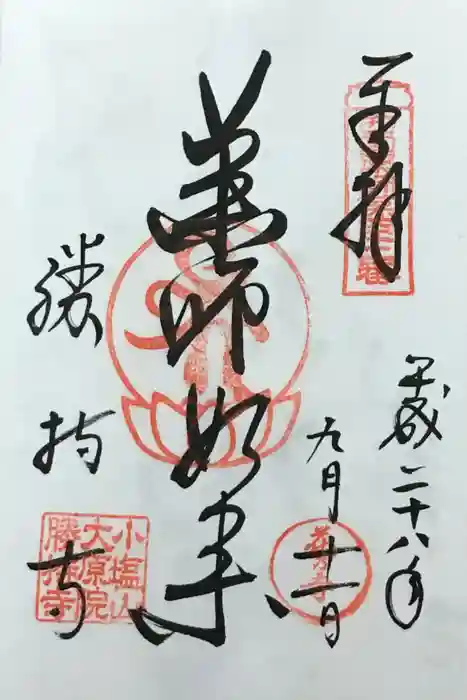 奉拝
平成二十八年
九月廿一日
薬師如来
勝持寺
小塩山
大原院
勝持寺